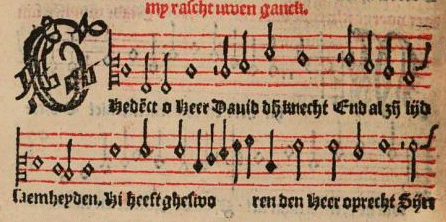 my rasche uwen ganck.
Hedēct o Heer David dijn knecht End al zij lijd
saemheyden, Hi heeft gheswo ren den Heer oprecht Sijn